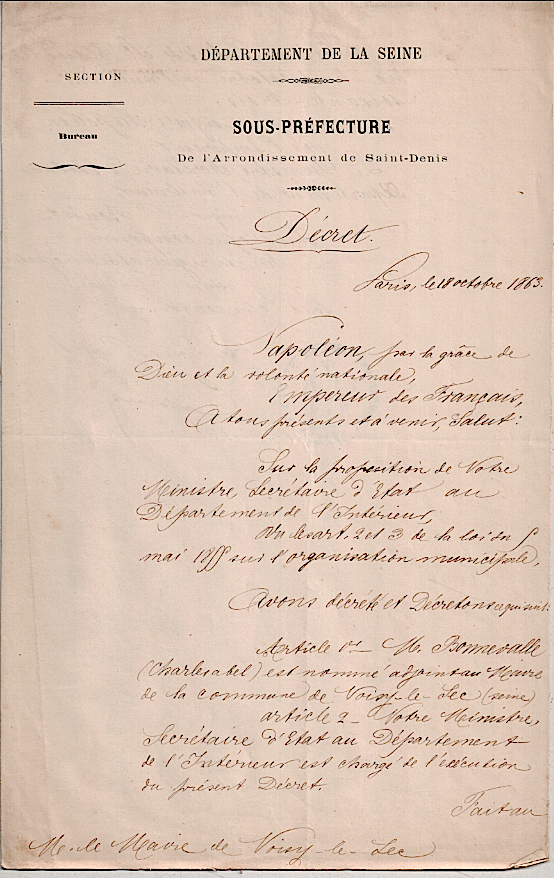 DÉPARTEMENT DE LA SEINE
SECTION
Bureau
SOUS-PRÉFECTURE
De l'Arrondissement de Saint-Denis
Décret.
Paris, le 18 octobre 1863.
Napoléon, par la grâce de
Dieu et la volonté nationale,
Empereur des Français,
A tous présents et à venir, Salut:
Sur la proposition de Notre
Ministre, Secrétaire d'Etat au
Département de l'Intérieur,
Vu les art. 2 et 3 de la loi du 5
mai 1855 sur l'organisation municipale,
Avons décrété et Décretons ce qui suit:
Article 1er M. Bonnevalle
(Charles abel) est nommé adjoint au Maire
de la commune de Noisy-le-Sec (seine)
article 2 - Notre Ministre,
Secrétaire d'Etat au Département
de l'Intérieur est chargé de l'exécution
du présent Décret.
Fait au
M. le Maire de Noisy-le-Sec